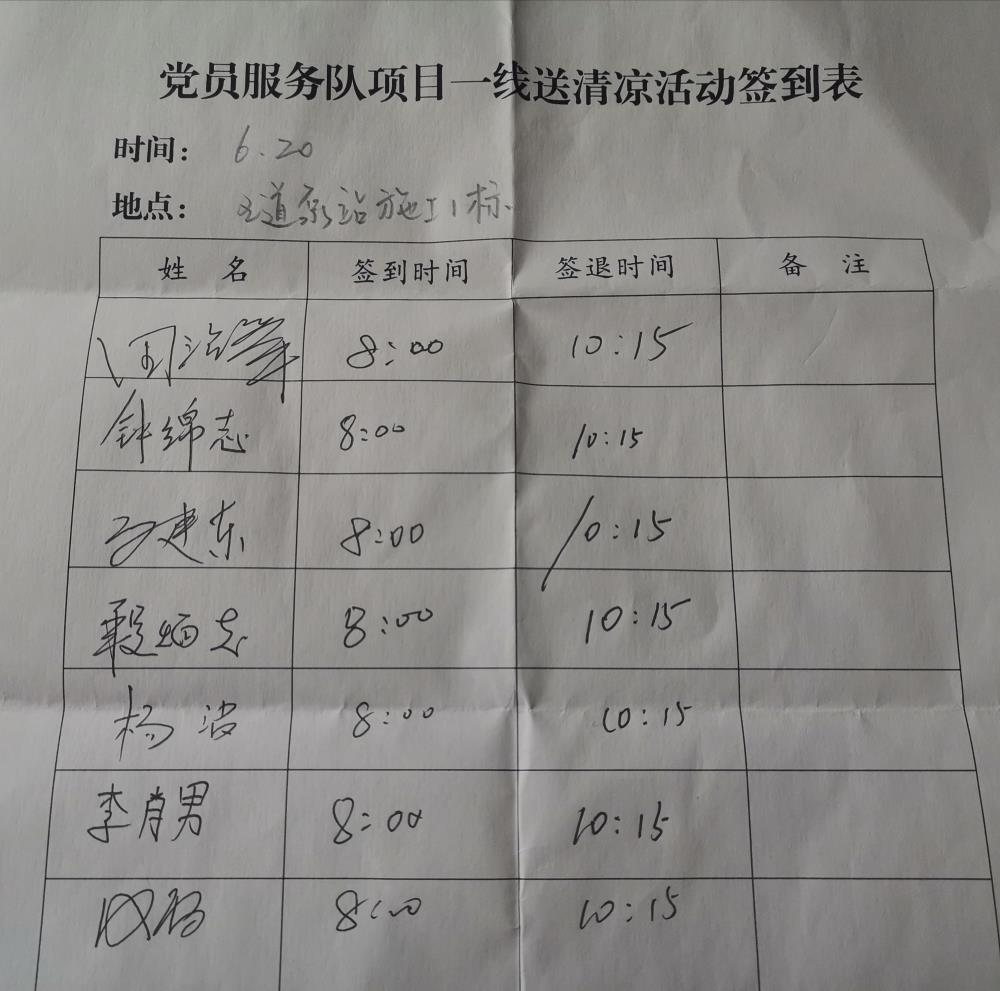 党员服务队项目一线送清凉活动签到表
时间： 6.20
地点： 道泵站施工1标
姓 名 签到时间 签退时间 备 注
周治 8:00 10:15
钟绵志 8:00 10:15
建东 8:00 10:15
炳志 8:00 10:15
杨波 8:00 10:15
李肖男 8:00 10:15
8:00 10:15